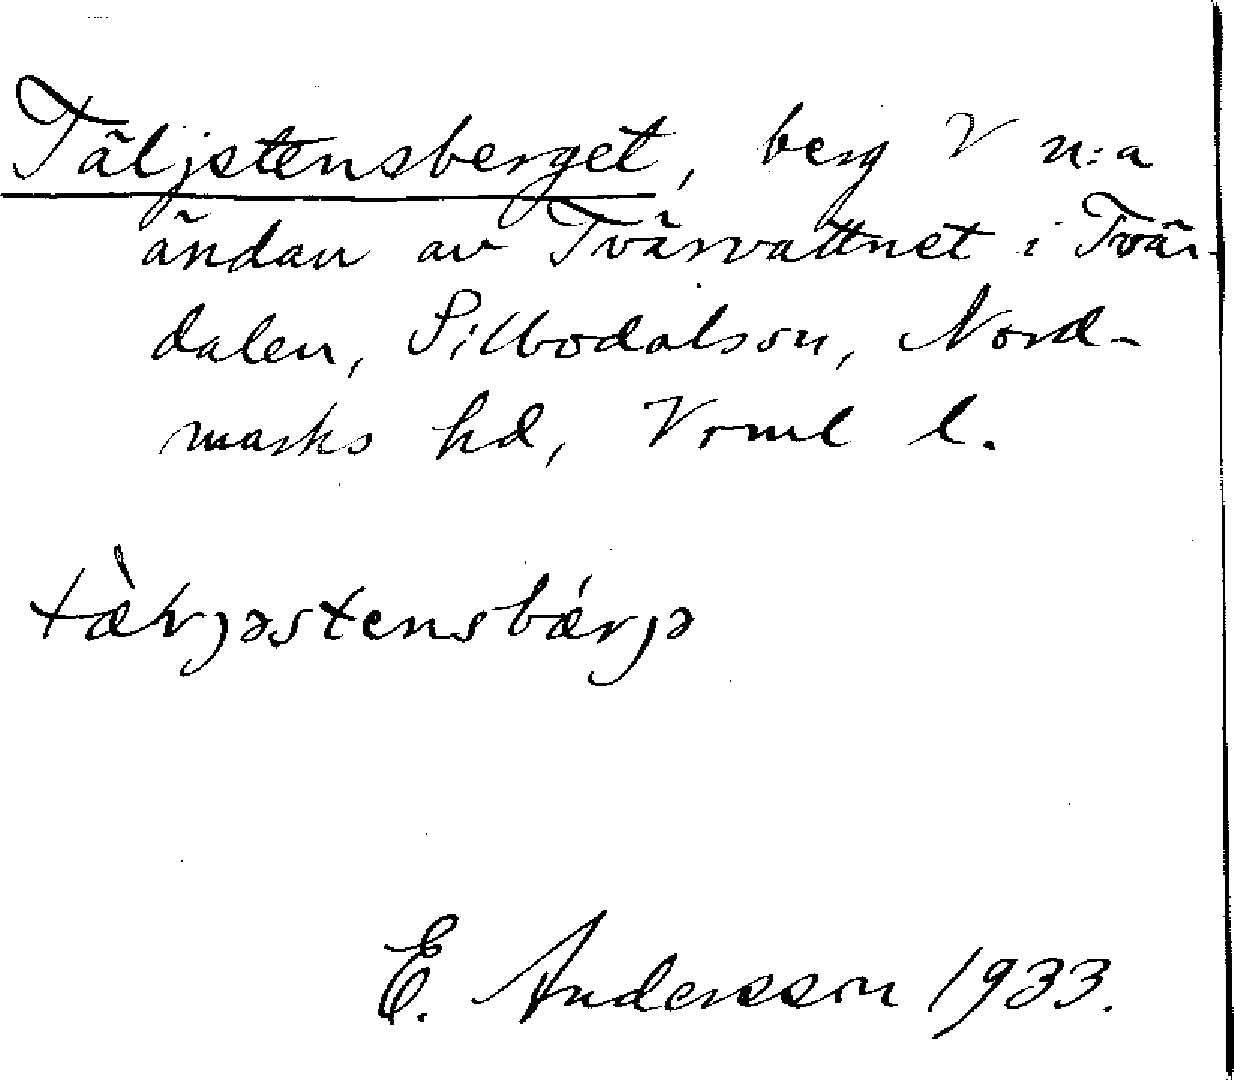 Täljstensberget, berg V n:a
ändan av Tvärvattnet i Tvär-
dalen, Silbodalssn, Nord-
marks hd, Vrml l.
E. Andersson 1933.